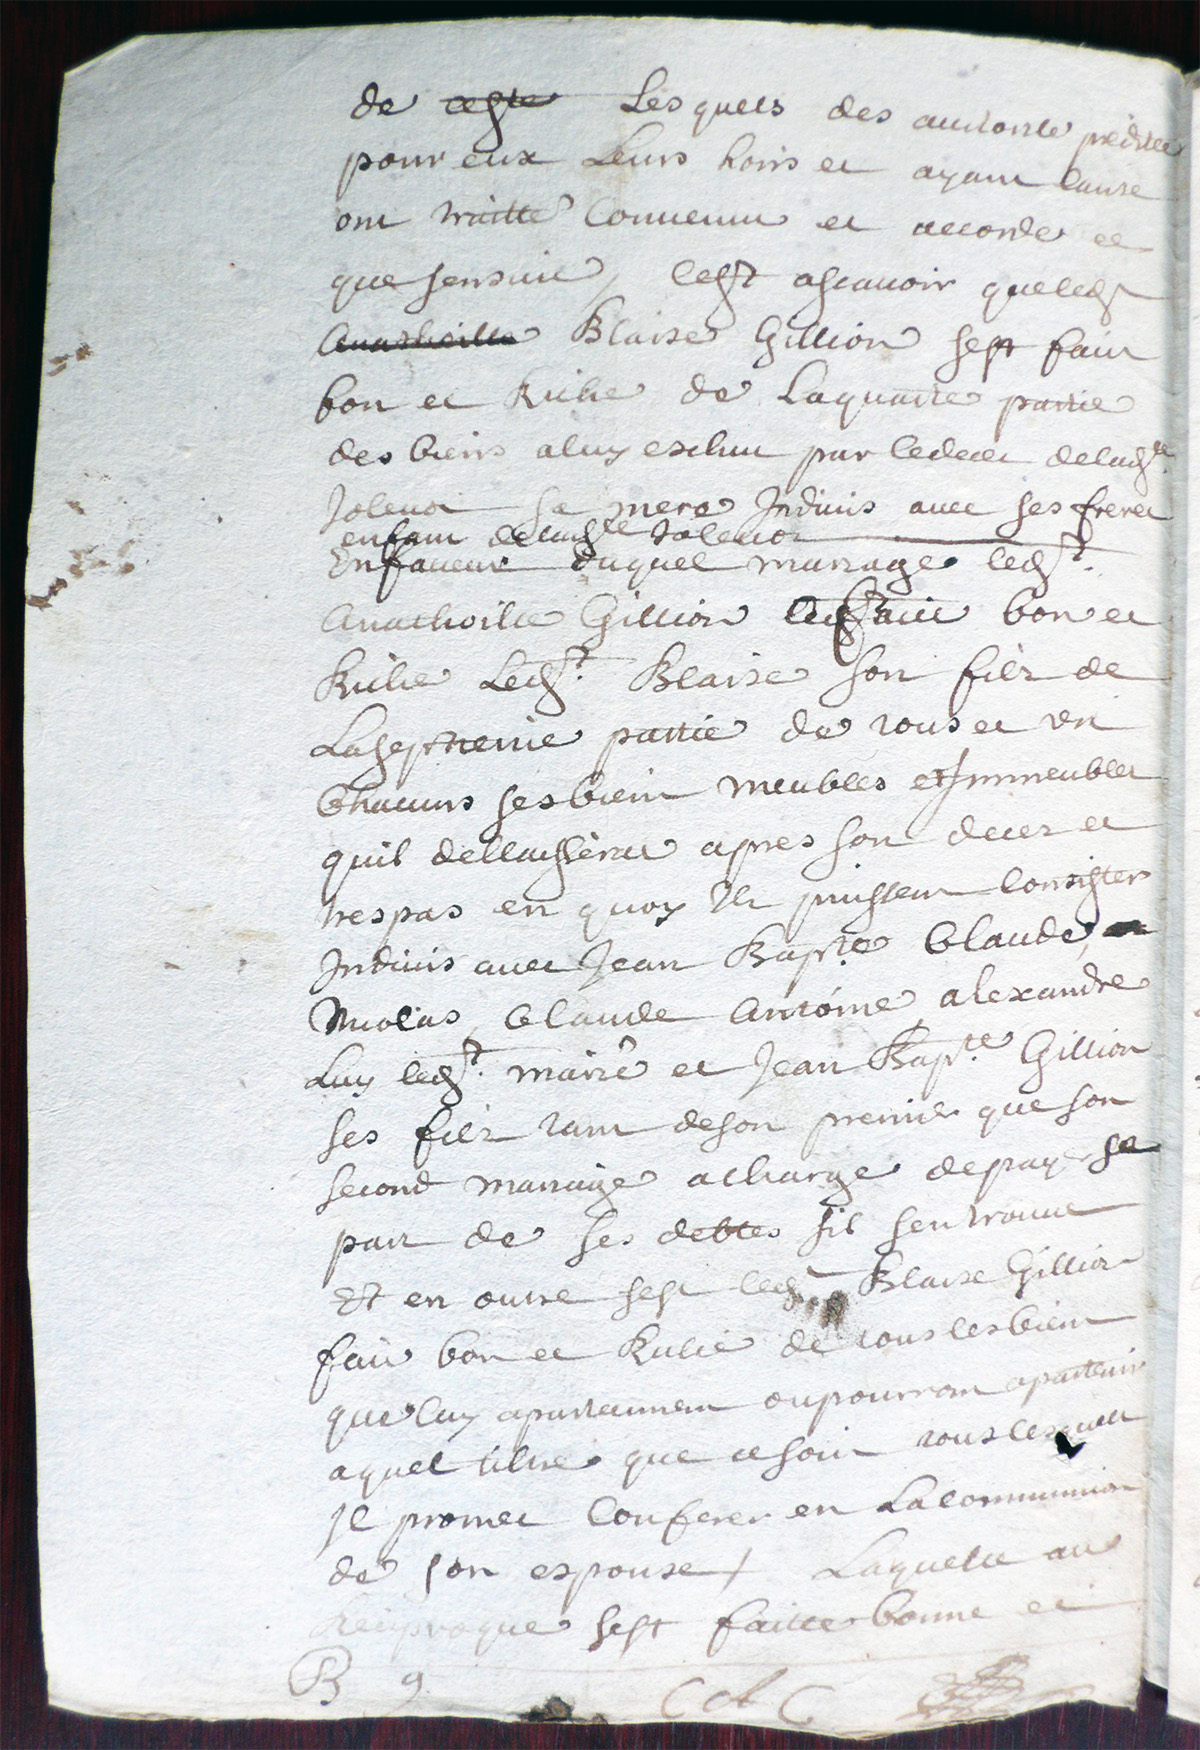 de ceste Lesquels des auctorite predicte
pour eux Leurs hoirs et ayant cause
ont traitte Convenu et accorde ce
que sensuit, Cest ascavoir queledt
Anatheille Blaise Gillion sest fait
bon et Riche de Laquarte partie
des biens aluy eschu par ledeces deladte
Jolenot sa mere Indivis avec ses freres
enfant deladte Jolenot
Enfaveur duquel mariage ledt
Anathoille Gillion fait bon et
Riche Ledt Blaise son filz de
Laseptieme partie de tous et un
Chacuns ses biens meubles et Immeubles
quil dellaissera apres son deces et
trespas en quoy Ilz puissent Consister
Indivis avec Jean Bapte Claude,
Nicolas, Claude Antoine, alexandre
Luy ledt mairie et Jean Bapte Gillion
ses filz tant deson premier que son
second mariage a charge depayer sa
part de ses debtes sil sentrouve
Et en outre sest ledt Blaise Gillion
fait bon et Riche de tous lesbiens
que luy apartiennent oupourront apartenir
aquel tiltre que cesoit tous lesquels
Il promet Conferer en Lacommunion
de son espouse / Laquelle au
Reciproque sest faitte bonne et
B g C A C